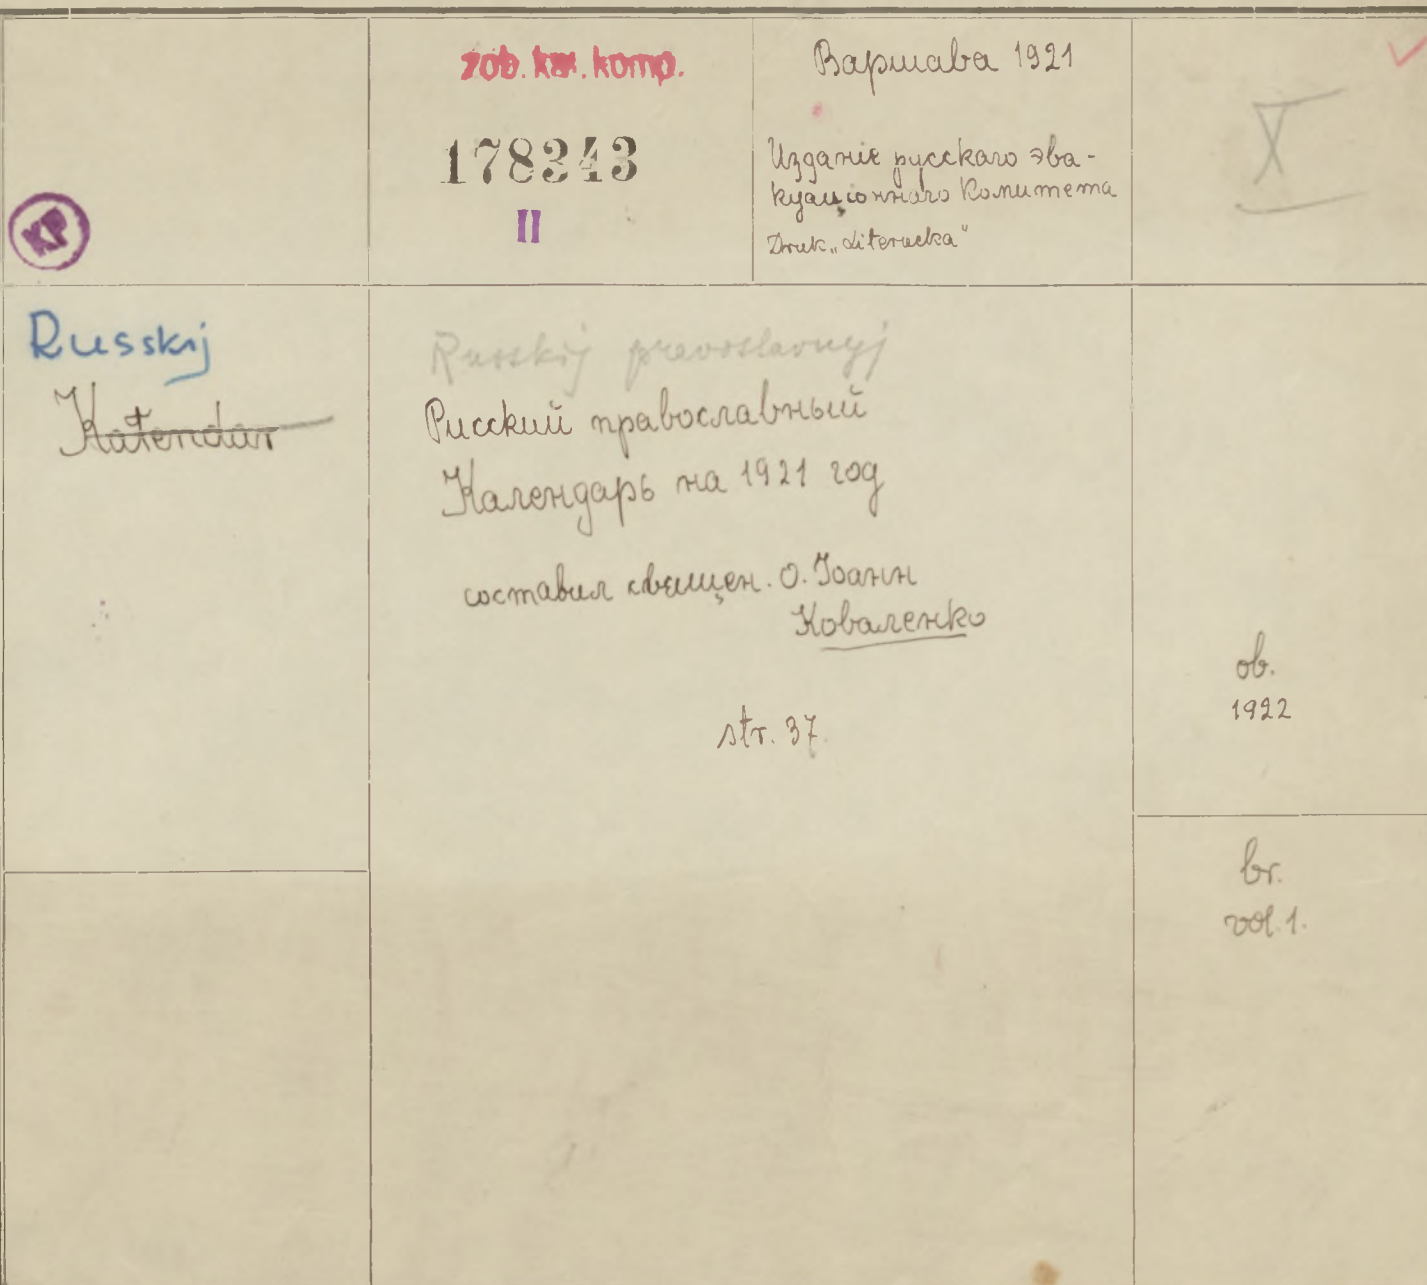 zob. kat. komp.
178343
II
KP
Варшава 1921
Изданіе русскаго эва-
куаціоннаго Комитета
Druk „Literacka"
X
Russkij
Kalendar
Russkij pravoslavnyj
Русский православный
Календарь на 1921 год
составил священ. О. Іоанн
Коваленко
str. 37.
ob.
1922
br.
vol. 1.